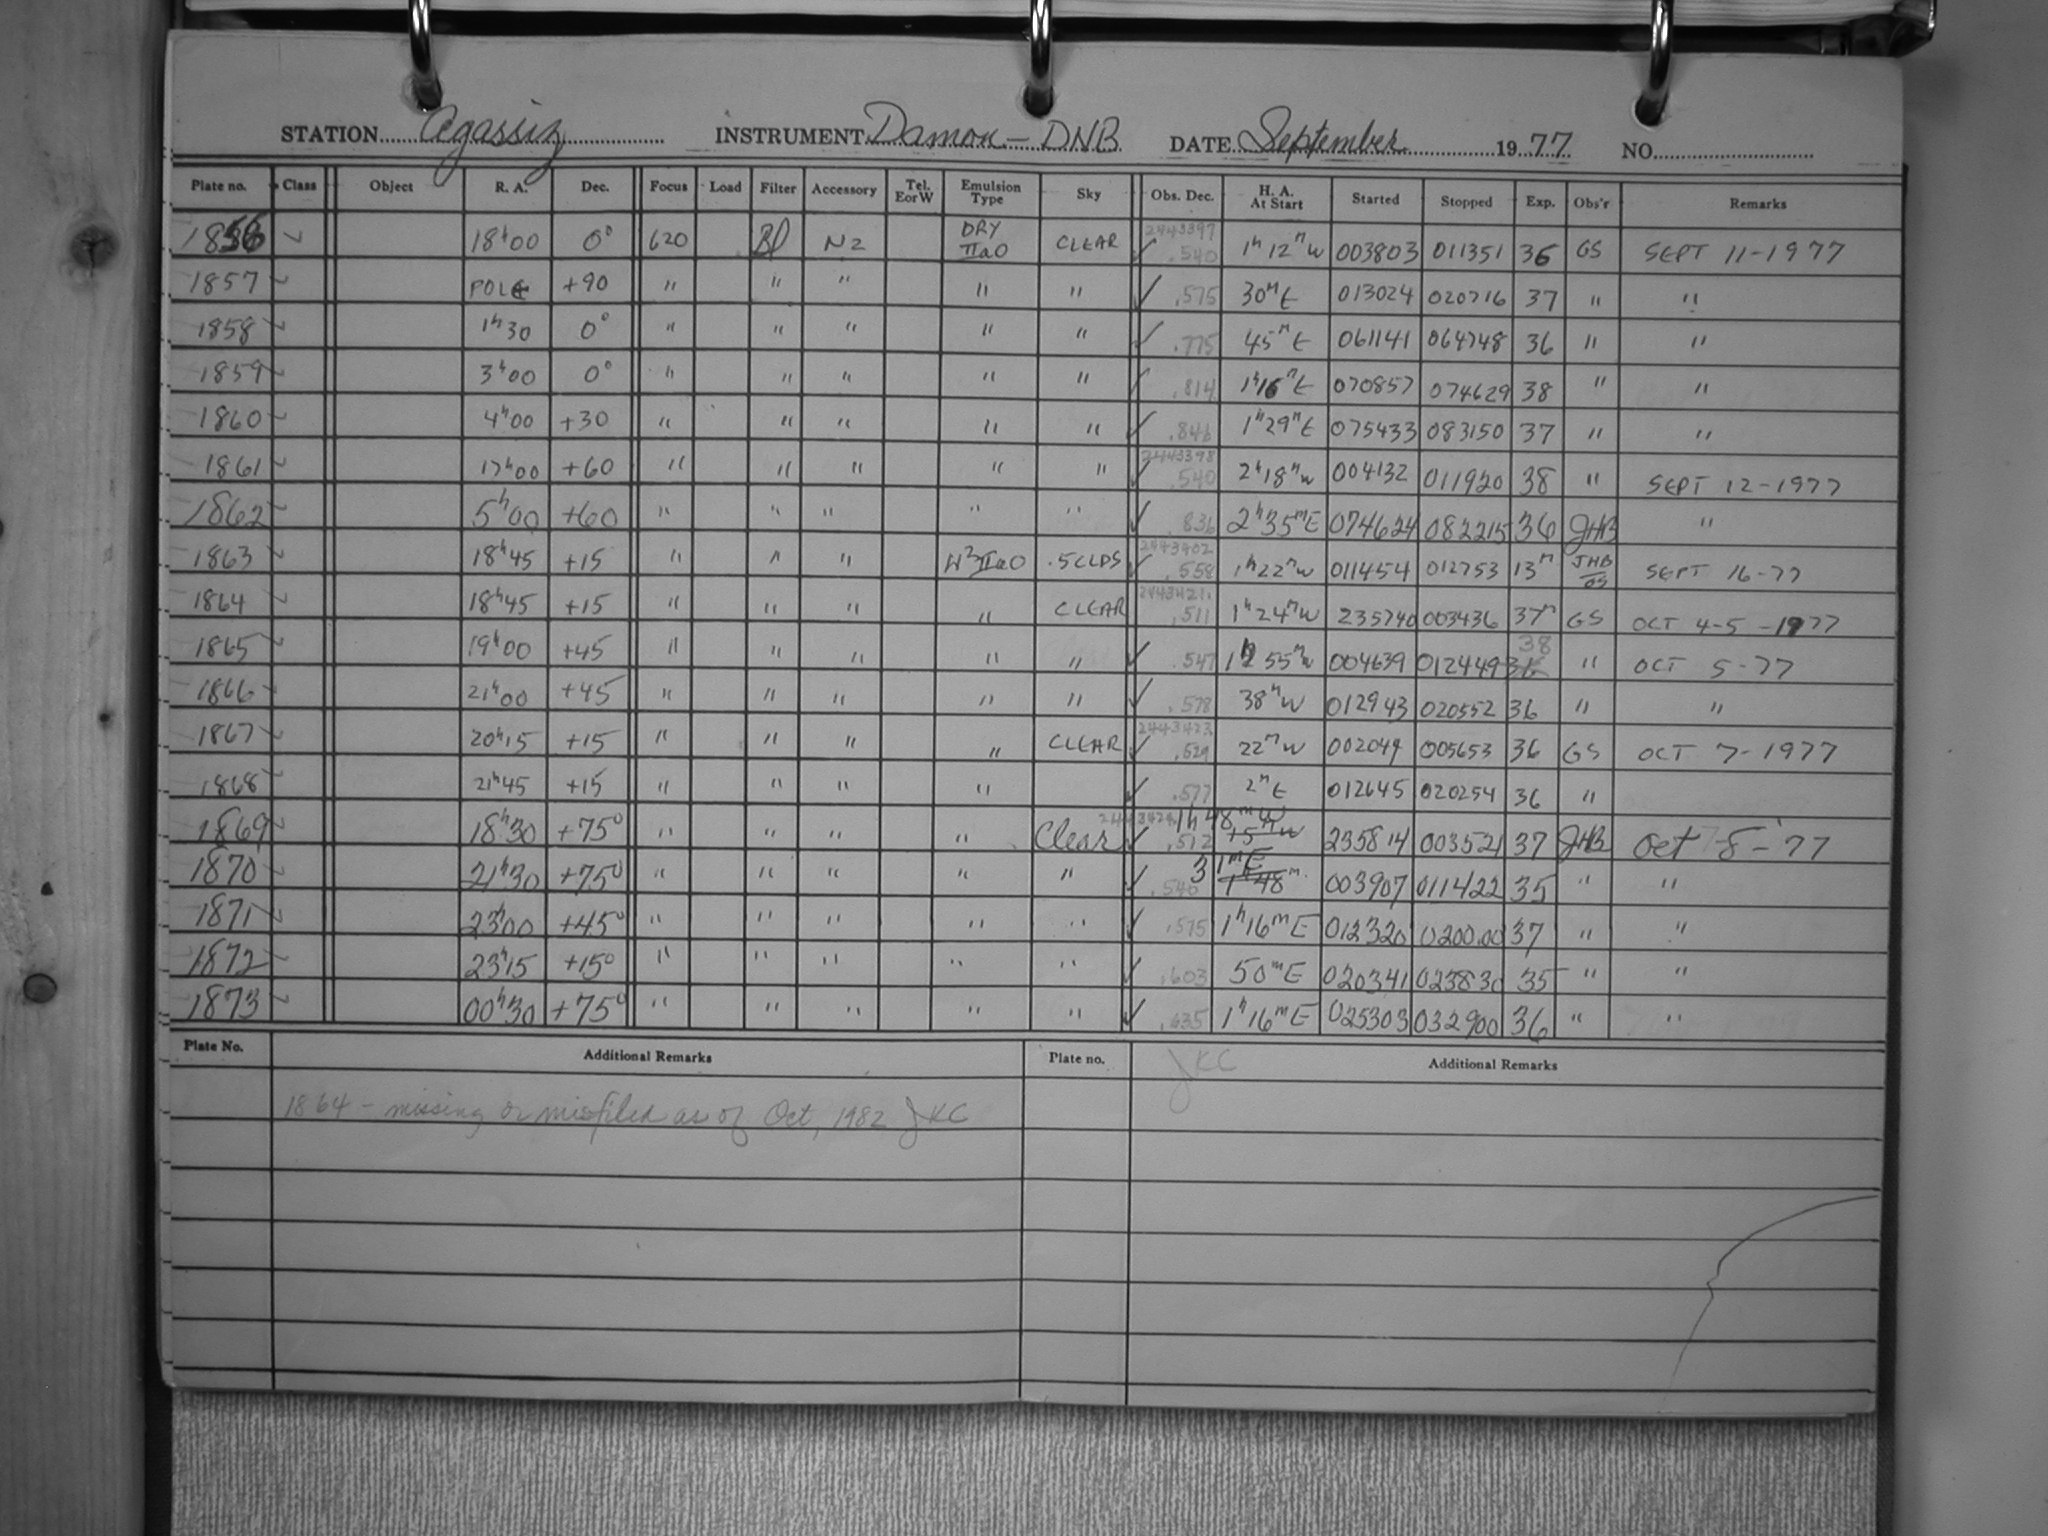 STATION Agassiz INSTRUMENT Damon - DNB DATE September 1977 NO.
Plate no. Class Object R. A. Dec. Focus Load Filter Accessory Tel. E or W Emulsion Type Sky Obs. Dec. H. A. At Start Started Stopped Exp. Obs'r Remarks
1856 ✓ 18h00 0° 620 Bl N2 DRY IIaO CLEAR 2443397 ✓ .540 1h12mW 003803 011351 36 GS SEPT 11-1977
1857 ✓ POLE +90 " " " " " ✓ .575 30mE 013024 020716 37 " "
1858 ✓ 1h30 0° " " " " " ✓ .775 45mE 061141 064748 36 " "
1859 ✓ 3h00 0° " " " " " ✓ .814 1h16mE 070857 074629 38 " "
1860 ✓ 4h00 +30 " " " " " ✓ .846 1h29mE 075433 083150 37 " "
1861 ✓ 17h00 +60 " " " " " 2443398 ✓ .540 2h18mW 004132 011920 38 " SEPT 12-1977
1862 ✓ 5h00 +60 " " " " " ✓ .836 2h35mE 074624 082215 36 JHB "
1863 ✓ 18h45 +15 " " " N2IIaO .5CLDS 2443402 ✓ .558 1h22mW 011454 012753 13m JHB/GS SEPT 16-77
1864 ✓ 18h45 +15 " " " " CLEAR 2443421 .511 1h24mW 235740 003436 37m GS OCT 4-5-1977
1865 ✓ 19h00 +45 " " " " " ✓ .547 1h55mW 004639 012449 38 " OCT 5-77
1866 ✓ 21h00 +45 " " " " " ✓ .578 38mW 012943 020552 36 " "
1867 ✓ 20h15 +15 " " " " CLEAR 2443423 ✓ .529 22mW 002049 005653 36 GS OCT 7-1977
1868 ✓ 21h45 +15 " " " " ✓ .577 2mE 012645 020254 36 "
1869 ✓ 18h30 +75° " " " " Clear 2443424 ✓ .512 1h48mW 235814 003521 37 JHB Oct 8-'77
1870 ✓ 21h30 +75° " " " " " ✓ .540 31mE 1h48m 003907 011422 35 " "
1871 ✓ 23h00 +45° " " " " " ✓ .575 1h16mE 012320 020000 37 " "
1872 ✓ 23h15 +15° " " " " " ✓ .603 50mE 020341 023830 35 " "
1873 ✓ 00h30 +75° " " " " " ✓ .635 1h16mE 025303 032900 36 " "
Plate No. Additional Remarks Plate no. JKC Additional Remarks
1864 - missing or misfiled as of Oct, 1982 JKC